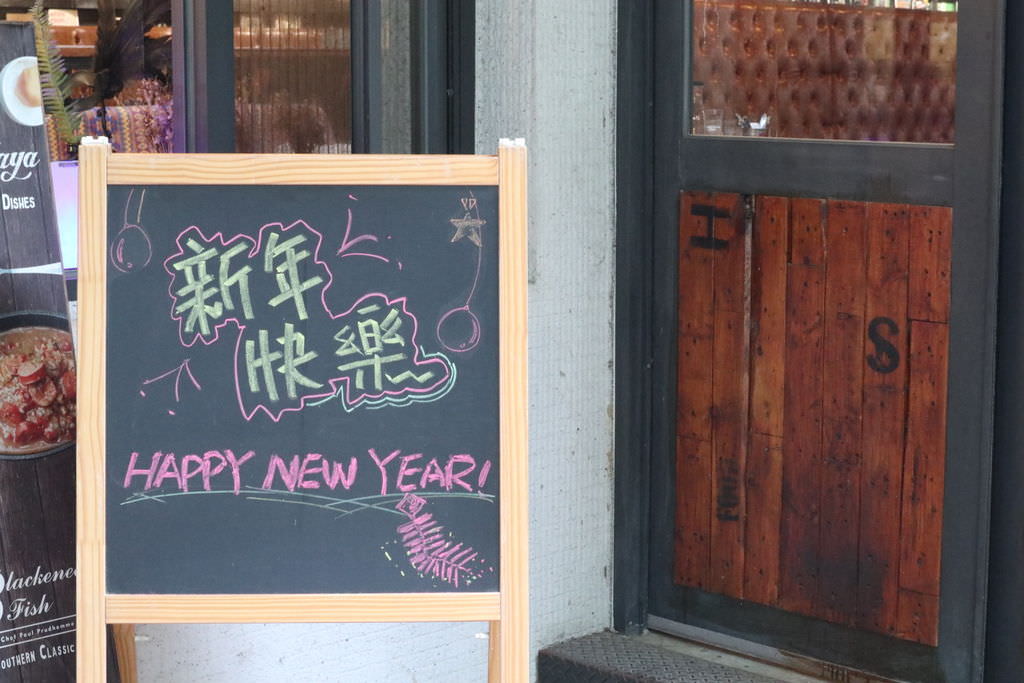 aya
Dishes
新年
快樂
HAPPY NEW YEAR!
lackene
Fish
Chef Paul Prudhomme
outhern Classic
H
S